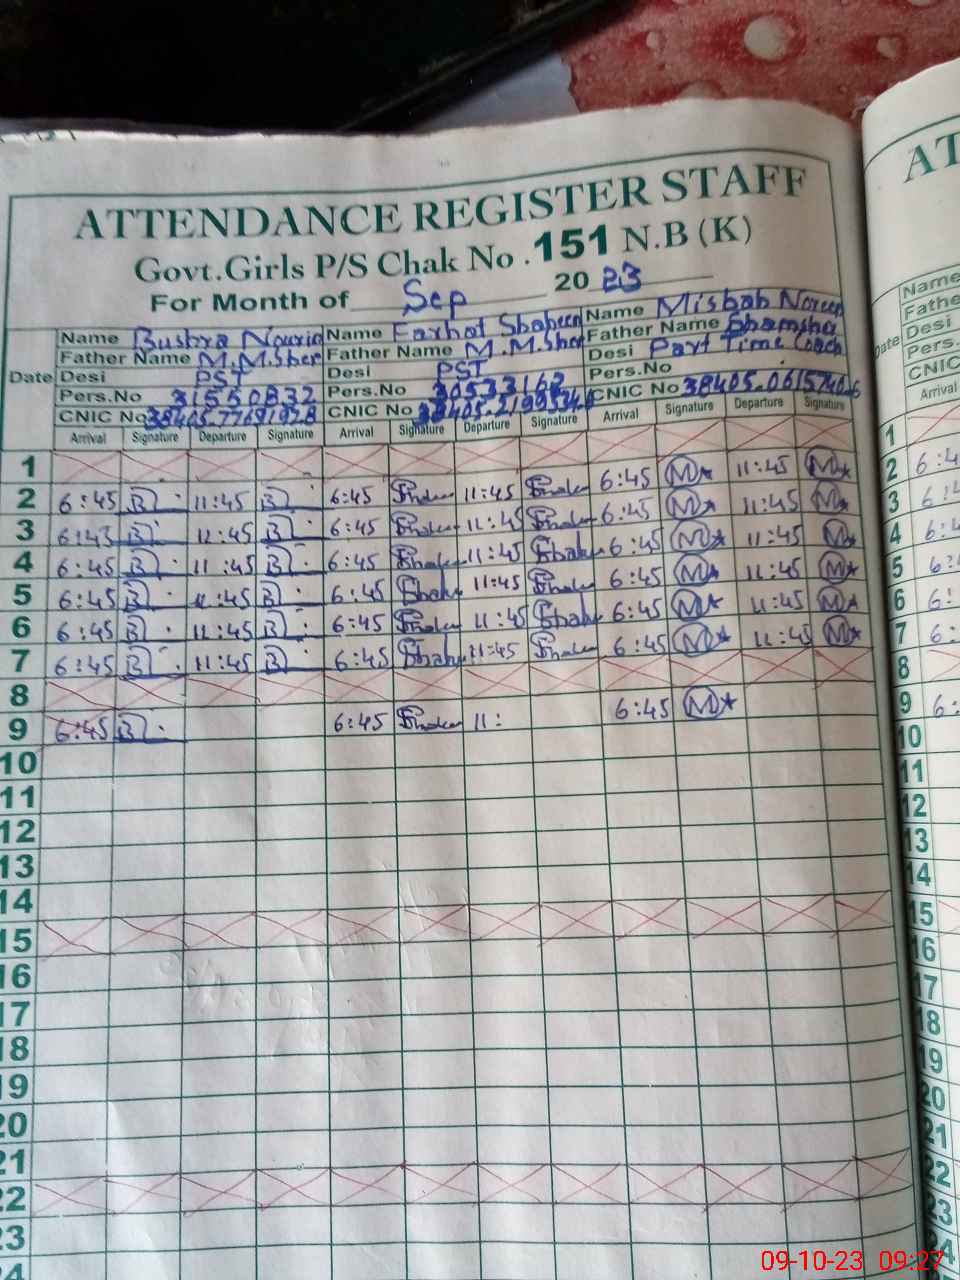 ATTENDANCE REGISTER STAFF
Govt.Girls P/S Chak No . 151 N.B (K)
For Month of Sep 20 23
Name Bushra Name Farhat Shaheen Name Misbah Noreen
Father Name M.M.Sher Father Name M.M.Sher Father Name
Date Desi PST Desi PST Desi Part Time Coach
Pers.No 31550832 Pers.No 30533162 Pers.No
CNIC No CNIC No CNIC No
Arrival Signature Departure Signature Arrival Signature Departure Signature Arrival Signature Departure Signature
1
2 6:45 B 11:45 B 6:45 11:45 6:45 M 11:45 M
3 6:45 B 11:45 B 6:45 11:45 6:45 M 11:45 M
4 6:45 B 11:45 B 6:45 11:45 6:45 M 11:45 M
5 6:45 B 11:45 B 6:45 11:45 6:45 M 11:45 M
6 6:45 B 11:45 B 6:45 11:45 6:45 M 11:45 M
7 6:45 B 11:45 B 6:45 11:45 6:45 M 11:45 M
8
9 6:45 B 6:45 11: 6:45 M
10
11
12
13
14
15
16
17
18
19
20
21
22
23
24
AT
Name
Fathe
Desi
Date
Pers.
CNIC
Arrival
1
2 6:4
3 6:4
4 6:4
5 6:
6 6:
7 6:
8
9 6:
10
11
12
13
14
15
16
17
18
19
20
21
22
23
24
09-10-23 09:27